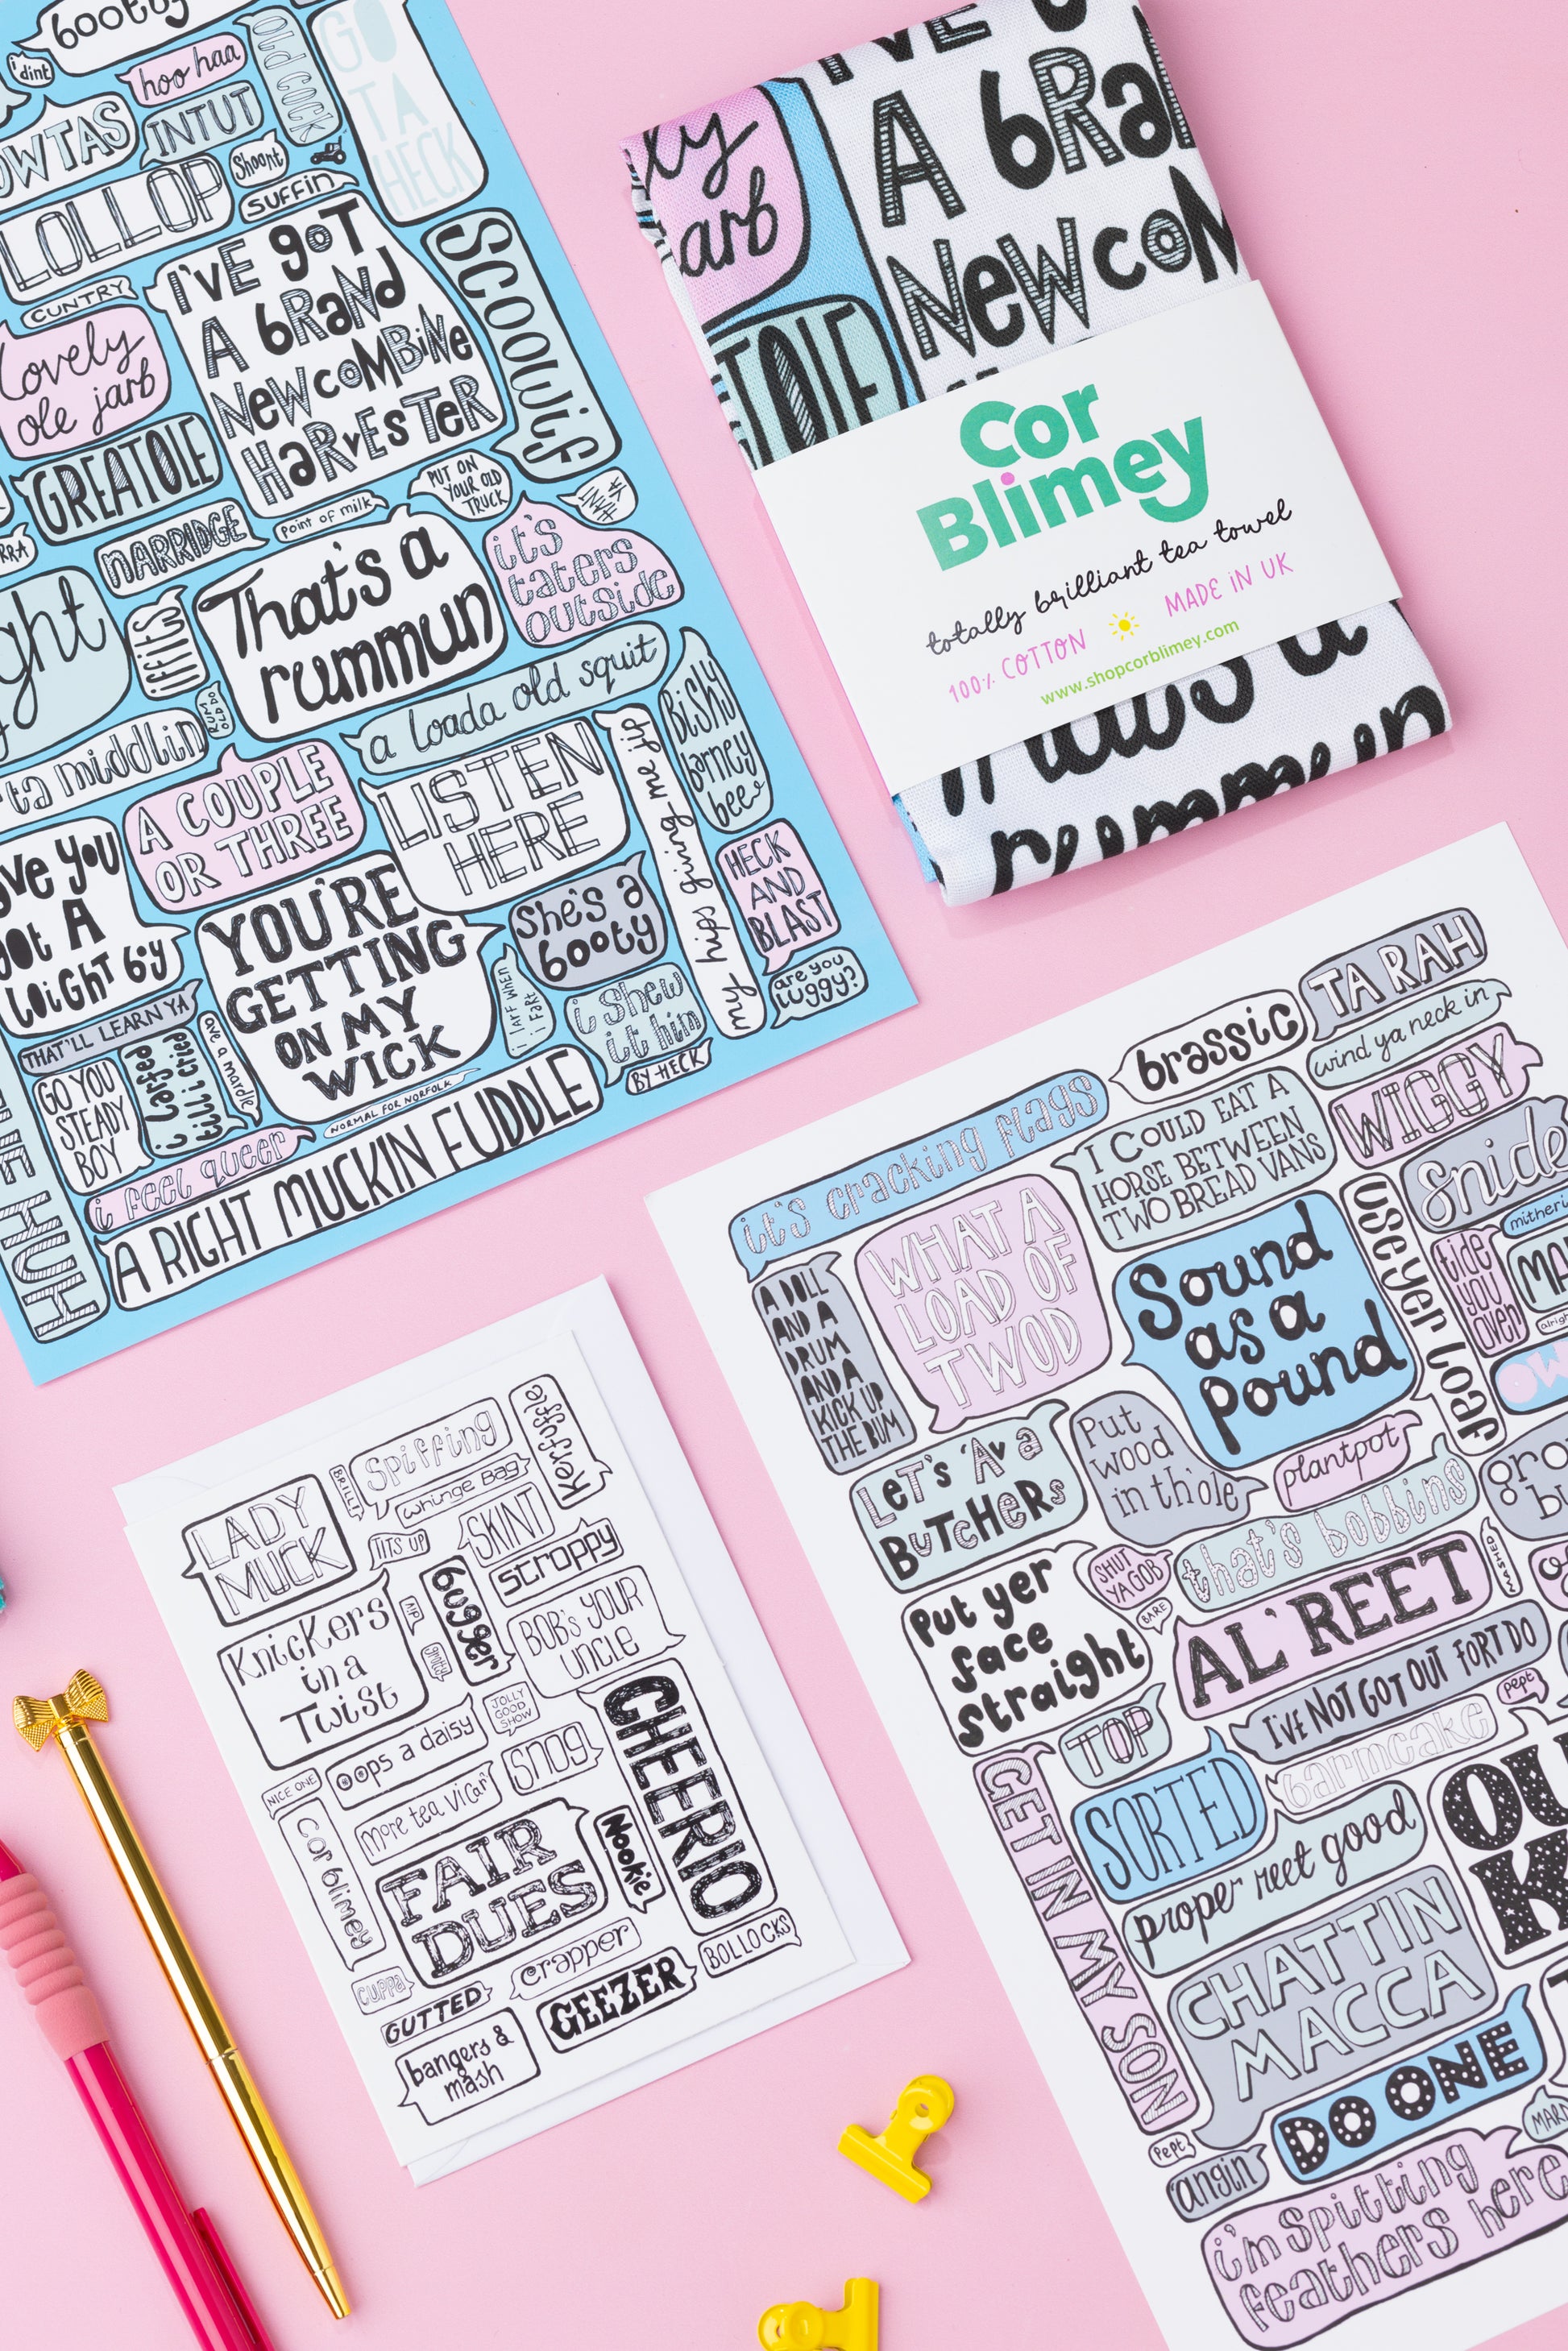 booty
i dint
hoo haa
OLD COCK
GO
TA
HECK
OWTAS
INTUT
Shoont
LOLLOP
SUFFIN
CUNTRY
I'VE gOT
A bRaNd
NeW COMBiNe
HaRvEsTeR
SCOOWif
Lovely
ole jarb
GREATOLE
PUT ON
YOUR OLD
TRUCK
Point of milk
NARRIDGE
it's
taters
outside
That's a
rummun
ight
iffits
a loada old squit
ta middlin
RUM
OLD DO
Bishy
barney
bee
A COUPLE
OR THREE
LISTEN
HERE
my hips giving me jip
HECK
AND
BLAST
are you
luggy?
ave you
got A
loight by
YOU'RE
GETTING
ON MY
WICK
She's a
booty
i LARF WHEN
i FART
i shew
it him
BY HECK
THAT'LL LEARN YA
GO YOU
STEADY
BOY
i Larfed
till i cried
ave a mardle
NORMAL FOR NORFOLK
i feel queer
A RIGHT MUCKIN FUDDLE
HUH
I'VE
A bRa
NeW COM
ly
arb
TOLE
Cor
Blimey
totally brilliant tea towel
100% COTTON
MADE iN UK
www.shopcorblimey.com
That's a
rummun
LADY
MUCK
BRILL!
Spiffing
Kerfuffle
whinge Bag
TITS UP
SKINT
stroppy
Knickers
in a
Twist
bugger
BOB's YOUR
UNCLE
oops a daisy
JOLLY
GOOD
SHOW
CHEERIO
NICE ONE
cor blimey
More tea Vicar
SNOG
FAIR
DUES
Nookie
CUPPA
crapper
BOLLOCKS
GUTTED
GEEZER
bangers &
mash
TA RAH
brassic
wind ya neck in
it's cracking flags
I COULD EAT A
HORSE BETWEEN
TWO BREAD VANS
WIGGY
snide
A DOLL
AND A
DRUM
AND A
KICK UP
THE BUM
WHAT A
LOAD OF
TWOD
Sound
as a
pound
use yer loaf
tide
you
over
LeT's 'Av a
BuTcHeRs
Put
wood
in th'ole
plantpot
that's bobbins
Put yer
face
straight
SHUT
YA GOB
BARE
AL' REET
MASHED
I'VE NOT GOT OUT FORT DO
pept
TOP
barmcake
SORTED
GET IN MY SON
proper reet good
CHATTIN
MACCA
DO ONE
Pept
angin
i'm spitting
feathers here